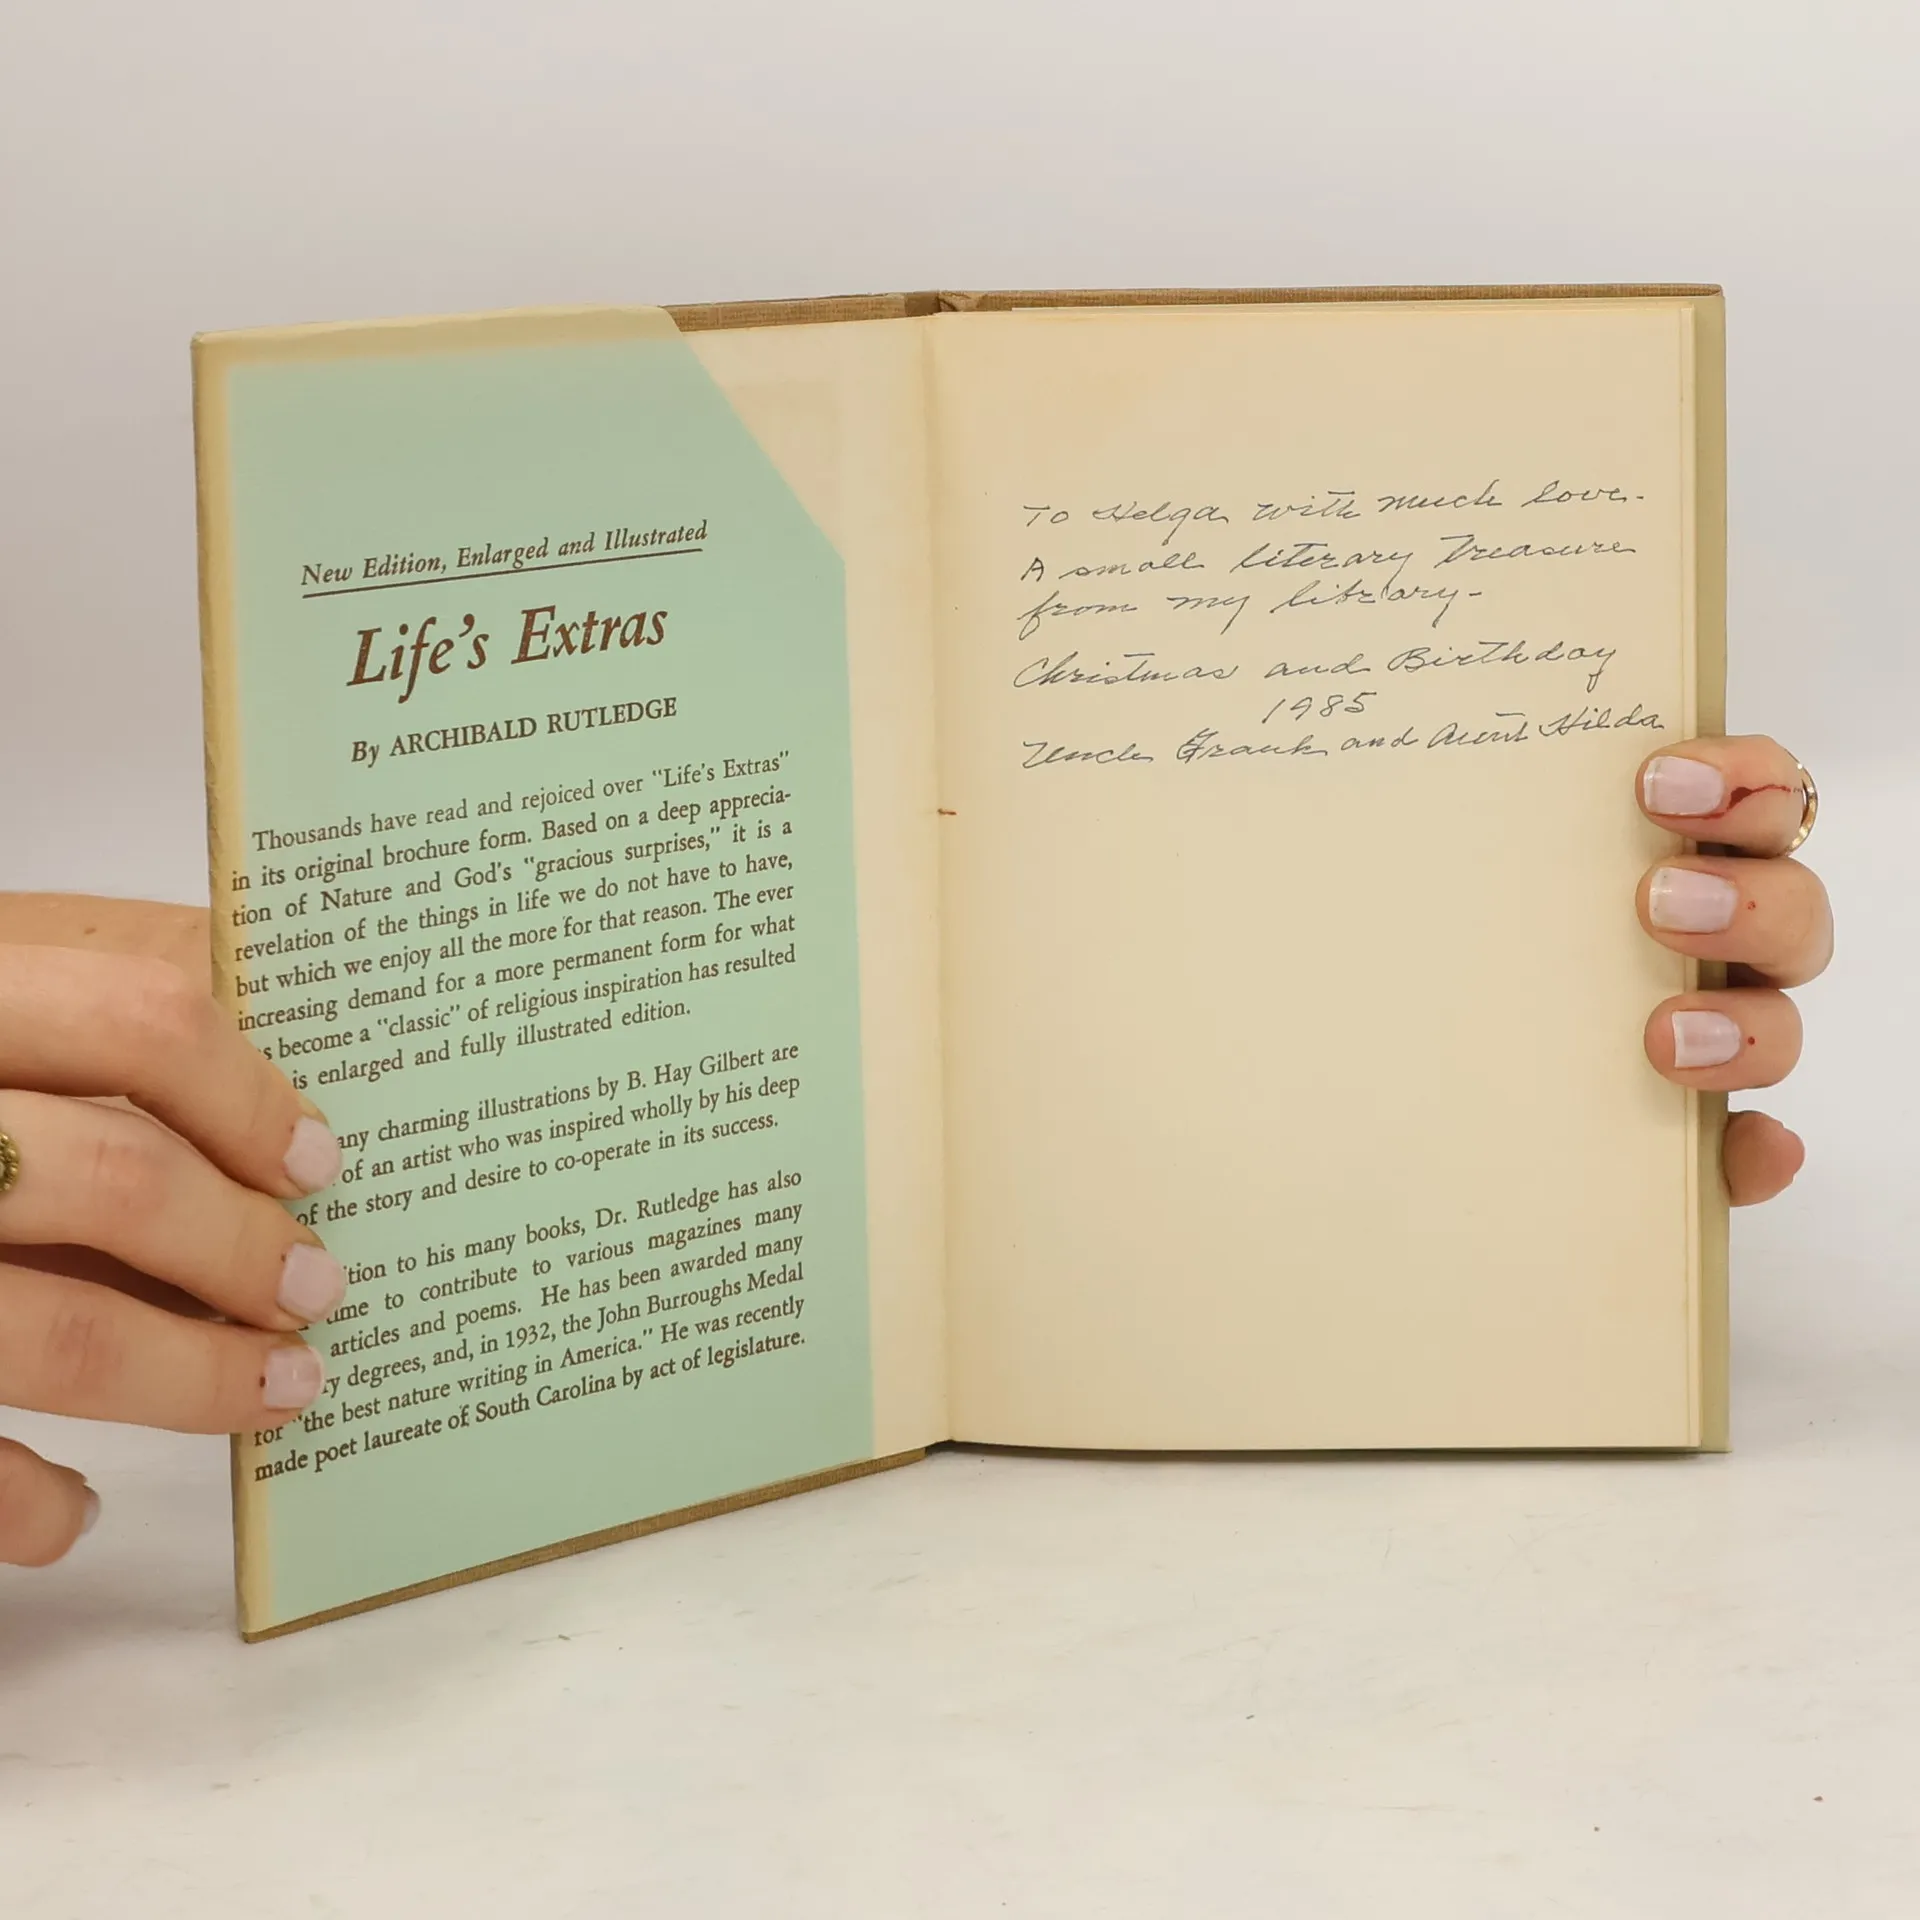 New Edition, Enlarged and Illustrated
Life's Extras
By ARCHIBALD RUTLEDGE
Thousands have read and rejoiced over "Life's Extras"
in its original brochure form. Based on a deep apprecia-
tion of Nature and God's "gracious surprises," it is a
revelation of the things in life we do not have to have,
but which we enjoy all the more for that reason. The ever
increasing demand for a more permanent form for what
s become a "classic" of religious inspiration has resulted
is enlarged and fully illustrated edition.
any charming illustrations by B. Hay Gilbert are
of an artist who was inspired wholly by his deep
of the story and desire to co-operate in its success.
ition to his many books, Dr. Rutledge has also
time to contribute to various magazines many
articles and poems. He has been awarded many
ry degrees, and, in 1932, the John Burroughs Medal
for "the best nature writing in America." He was recently
made poet laureate of South Carolina by act of legislature.
To Helga with much love.
A small literary treasure
from my library-
Christmas and Birthday
1985
Uncle Frank and Aunt Hilda